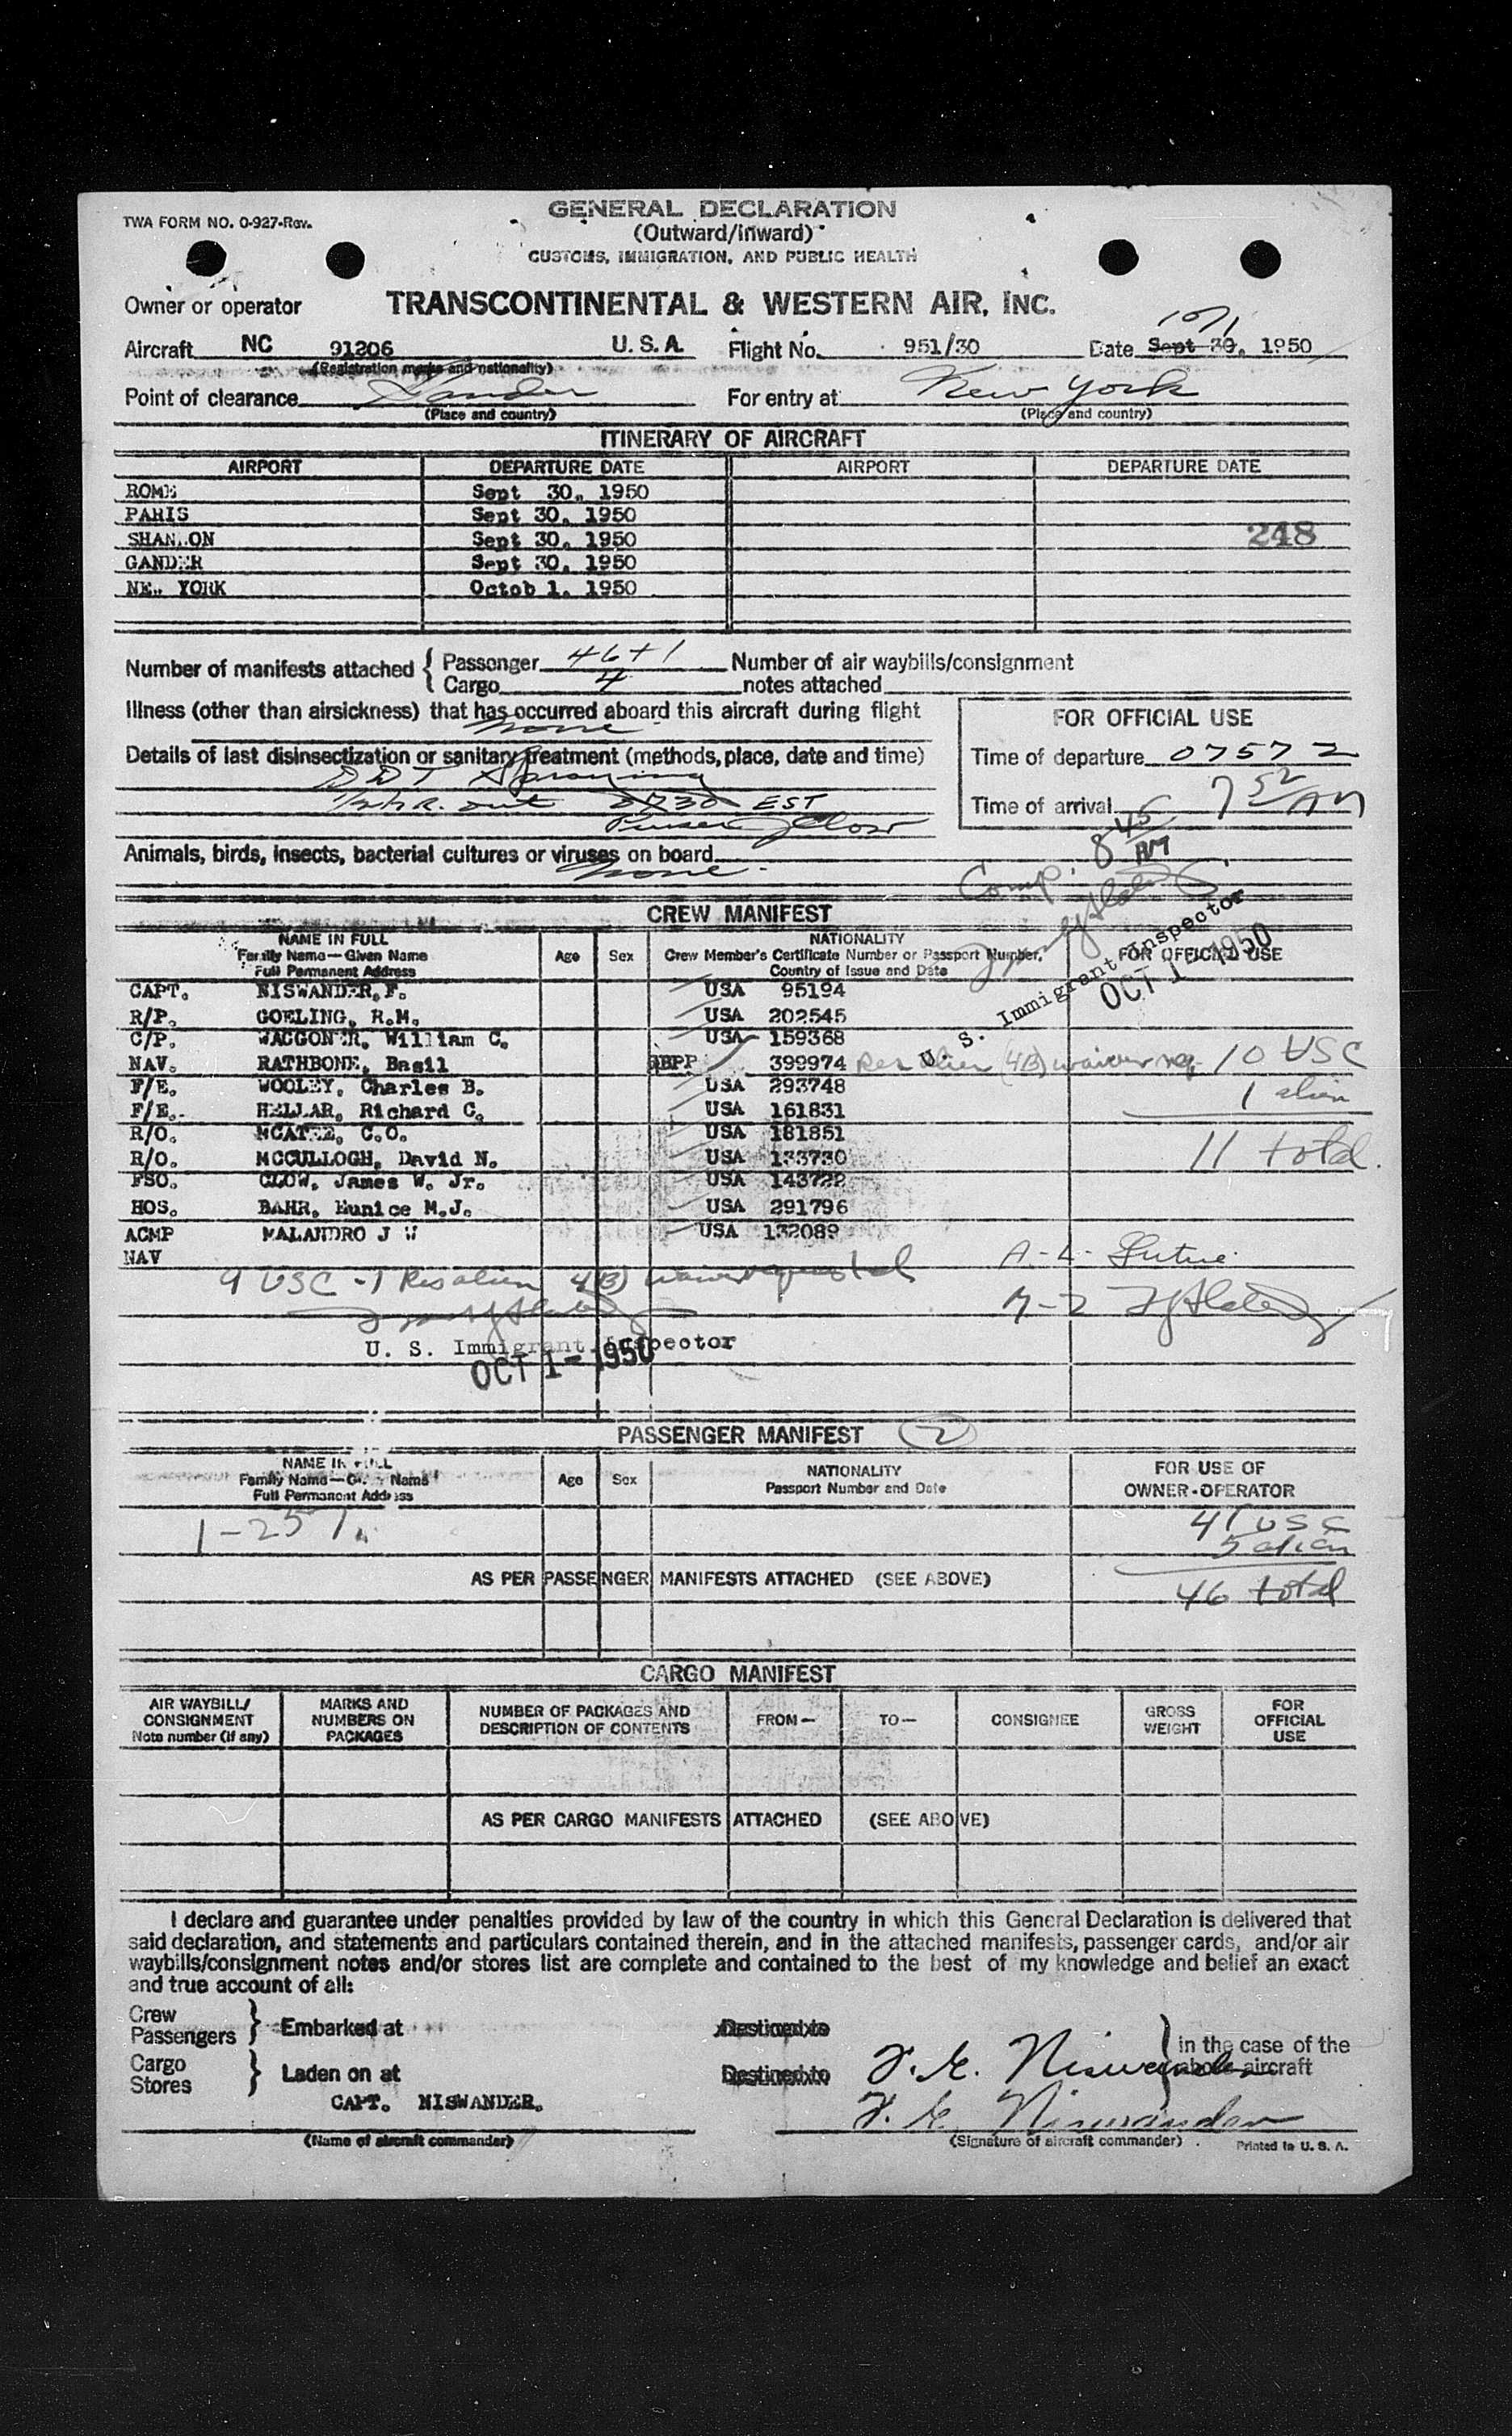 TWA FORM NO. 0-927-Rev.
GENERAL DECLARATION
(Outward/Inward)
CUSTOMS, IMMIGRATION, AND PUBLIC HEALTH
Owner or operator TRANSCONTINENTAL & WESTERN AIR, INC.
10/1
Aircraft NC 91206 U. S. A. Flight No. 951/30 Date Sept 30, 1950
(Registration marks and nationality)
Point of clearance Gander For entry at New York
(Place and country) (Place and country)
ITINERARY OF AIRCRAFT
AIRPORT DEPARTURE DATE AIRPORT DEPARTURE DATE
ROME Sept 30, 1950
PARIS Sept 30, 1950
SHANNON Sept 30, 1950 248
GANDER Sept 30, 1950
NEW YORK Octob 1, 1950
Number of manifests attached { Passenger 46+1 Number of air waybills/consignment
Cargo 4 notes attached
Illness (other than airsickness) that has occurred aboard this aircraft during flight
none
FOR OFFICIAL USE
Details of last disinsectization or sanitary treatment (methods, place, date and time)
Time of departure 0757 Z
DDT Spraying
1/2 hR. out 0730 EST
Time of arrival 7 52 AM
Purser Clow
Animals, birds, insects, bacterial cultures or viruses on board
none
Comp. 8 45 AM
U. S. Immigrant Inspector
OCT 1 - 1950
CREW MANIFEST
NAME IN FULL Age Sex NATIONALITY FOR OFFICIAL USE
Family Name—Given Name Crew Member's Certificate Number or Passport Number,
Full Permanent Address Country of Issue and Date
CAPT. NISWANDER, F. USA 95194
R/P. GOELING, R.M. USA 202545
C/P. WAGGONER, William C. USA 159368
NAV. RATHBONE, Basil BPP 399974 Res alien (4B) waiver req. 10 USC
F/E. WOOLEY, Charles B. USA 293748 1 alien
F/E. HELLAR, Richard C. USA 161831
R/O. MCATEE, C.O. USA 181851 11 total.
R/O. MCCULLOGH, David N. USA 133730
FSO. CLOW, James W. Jr. USA 143722
HOS. BAHR, Eunice M.J. USA 291796
ACMP MALANDRO J W USA 132089
NAV
9 USC - 1 Res alien 4(B) waiver requested
U. S. Immigrant Inspector
OCT 1 - 1950
PASSENGER MANIFEST 2
NAME IN FULL Age Sex NATIONALITY FOR USE OF
Family Name—Given Name Passport Number and Date OWNER-OPERATOR
Full Permanent Address
41 USC
5 alien
AS PER PASSENGER MANIFESTS ATTACHED (SEE ABOVE)
46 total
CARGO MANIFEST
AIR WAYBILL/ CONSIGNMENT Note number (if any) MARKS AND NUMBERS ON PACKAGES NUMBER OF PACKAGES AND DESCRIPTION OF CONTENTS FROM— TO— CONSIGNEE GROSS WEIGHT FOR OFFICIAL USE
AS PER CARGO MANIFESTS ATTACHED (SEE ABOVE)
I declare and guarantee under penalties provided by law of the country in which this General Declaration is delivered that
said declaration, and statements and particulars contained therein, and in the attached manifests, passenger cards, and/or air
waybills/consignment notes and/or stores list are complete and contained to the best of my knowledge and belief an exact
and true account of all:
Crew
Passengers } Embarked at Destined to
in the case of the
above aircraft
Cargo
Stores } Laden on at Destined to F. E. Niswander
CAPT. NISWANDER. F. E. Niswander
(Name of aircraft commander) (Signature of aircraft commander) Printed in U. S. A.